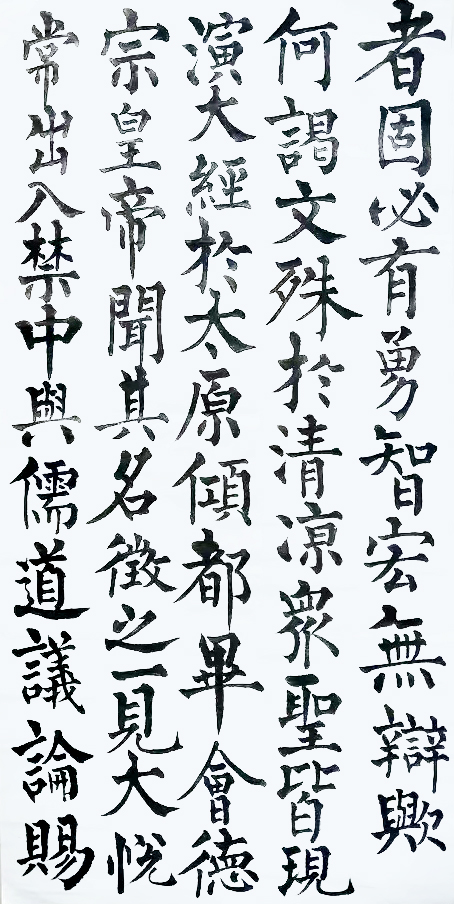 者固必有勇智宏無辯歟
何謁文殊於清涼眾聖皆現
演大經於太原傾都畢會德
宗皇帝聞其名徵之一見大悅
常出入禁中與儒道議論賜